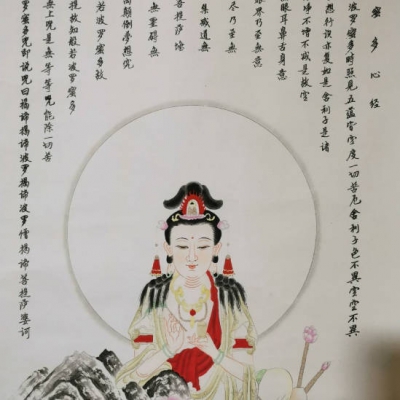 蜜多心经
波罗蜜多时照见五蕴皆空度一切苦厄舍利子色不異空空不異
想行识亦复如是舍利子是诸
净不增不减是故空
眼耳鼻舌身意
眼界乃至無
尽乃至無
集滅道無
菩提萨埵
無罣碍無
颠倒梦想究
若波罗蜜多故
提故知般若波罗蜜多
無上咒是無等等咒能除一切苦
罗蜜多咒即说咒曰揭谛揭谛波罗揭谛波罗僧揭谛菩提萨婆诃